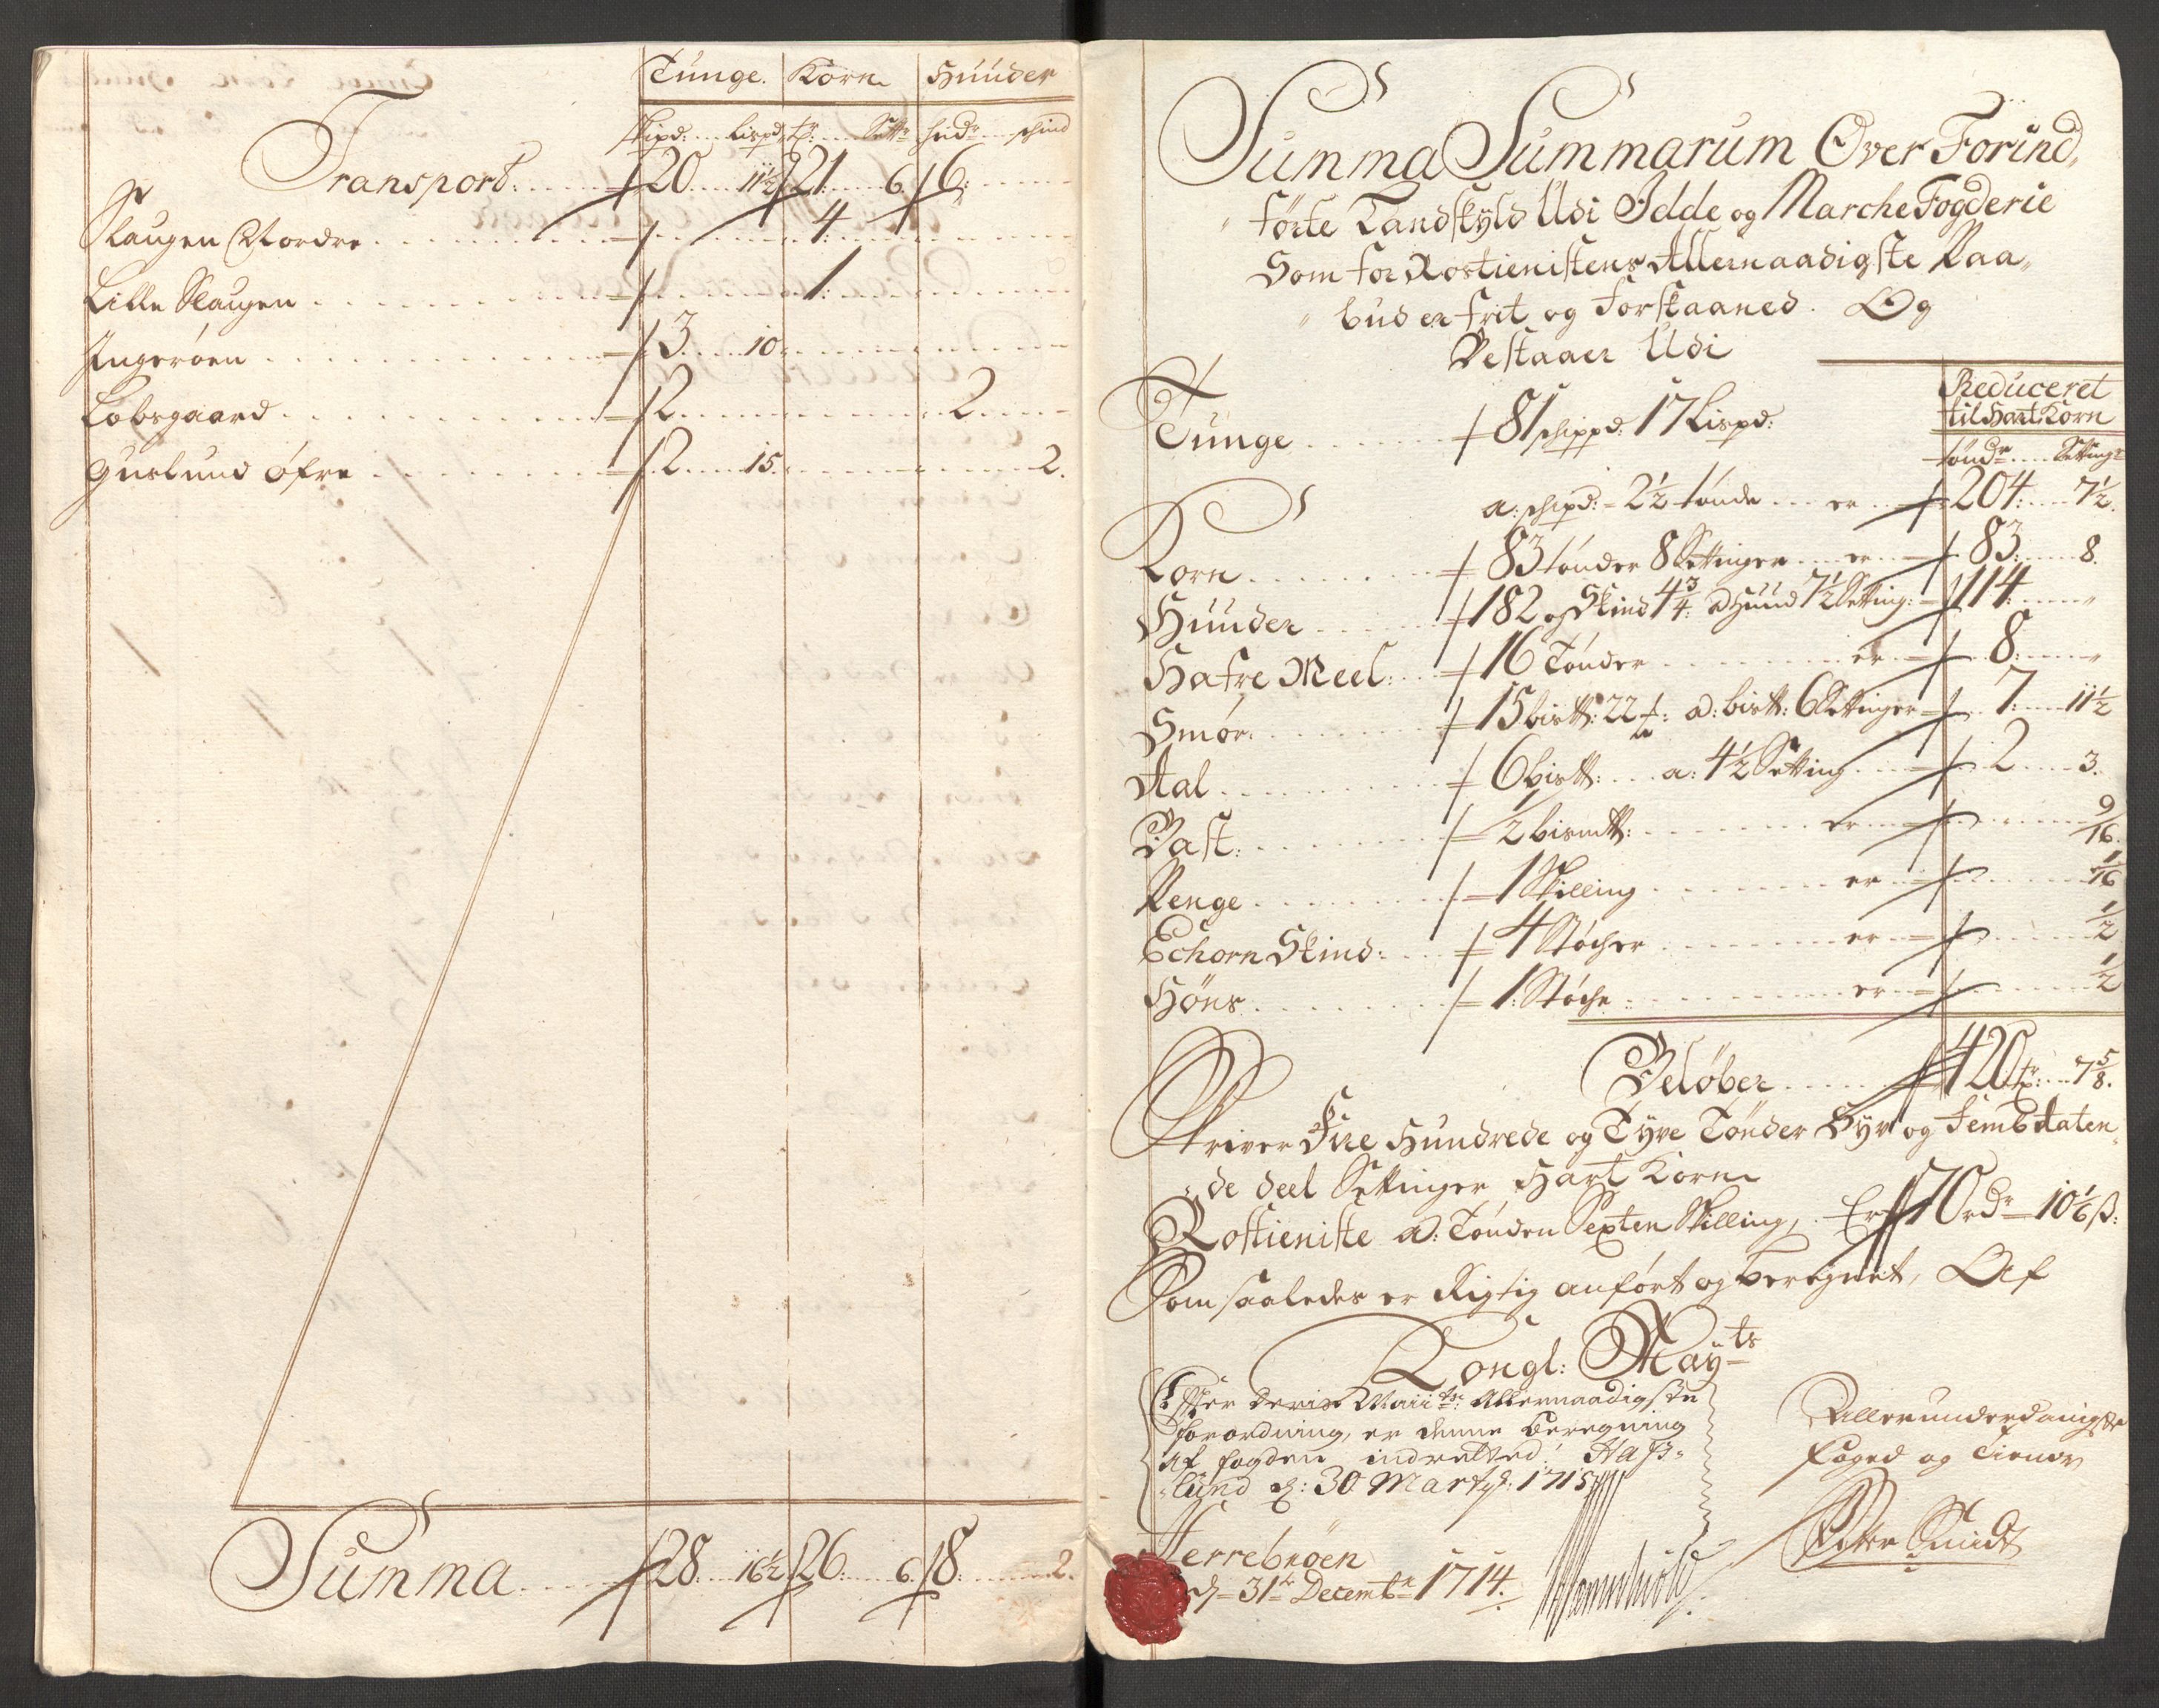 Tunge. Korn Huuder
skipd: lispd tr: Sett: hud: skind
Transport: 20 11½ 21 6 6
Slaugen Nordre 4
Lille Slaugen 1
Ingerøen 3 10
Labsgaard 2 2
Guslund Øfre 2 15 2.
Summa 28 16½ 26 6 8 2.
Summa Summarum Over Forind,,
førte Landskyld Udi Idde og Marche Fogderie
Som for Rostienistens Allernaadigste Paa,,
bud er frit og Forskaaned. Og
Bestaaer Udi
Reduceret
til Hart Korn
Tunge 81 schippd: 17 Lispd:
tønd: Setting:
a: schipd: 2½ tønde er 204: 7½.
Korn 83 tønder 8 Settinger er 83: 8.
Huuder 182 og Skind 4¾: a Huud 7½ Setting: 114: "
Hafre Meel: 16 Tønder er 8: "
Smør: 15 bistt: 22 a: bistt: 6 Settinger 7: 11½
Aal 6 bistt: a: 4½ Setting 2 3.
Vast: ½ bismtt: er 9/16.
Penge 1 Skilling er 1/16
Echorn Skind: 4 Støcher er ½
Høns 1: Støche er ½
Beløber 420 tr: 7⅝.
Skriver Fire Hundrede og Tyve Tønder Syv og Femb Aaten,,
de deel Settinger Hart Korn
Rostieniste a: Tønden Sexten Skilling, Er 70 rdr 10⅙ ß:
Som saaledes er Rigtig anført og beregnet, Af
Kongl: May:ts
Efter Deris Maii:ts Allernaadigste
forordning, er denne Beregning
af fogden indretted. Haf߸
lund d: 30 Marty: 1715
Allerunderdanigste
Foged og Tiener
Herrebrøen
d: 31te Decembr: 1714.
Peter